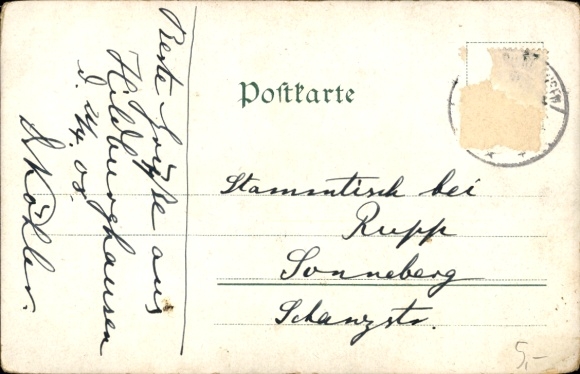 Postkarte
Beste Grüße aus
Hildburghausen
d. 2/4. 08.
Köhler.
Stammtisch bei
Rupp
Sonneberg
Schanzstr.
5,-